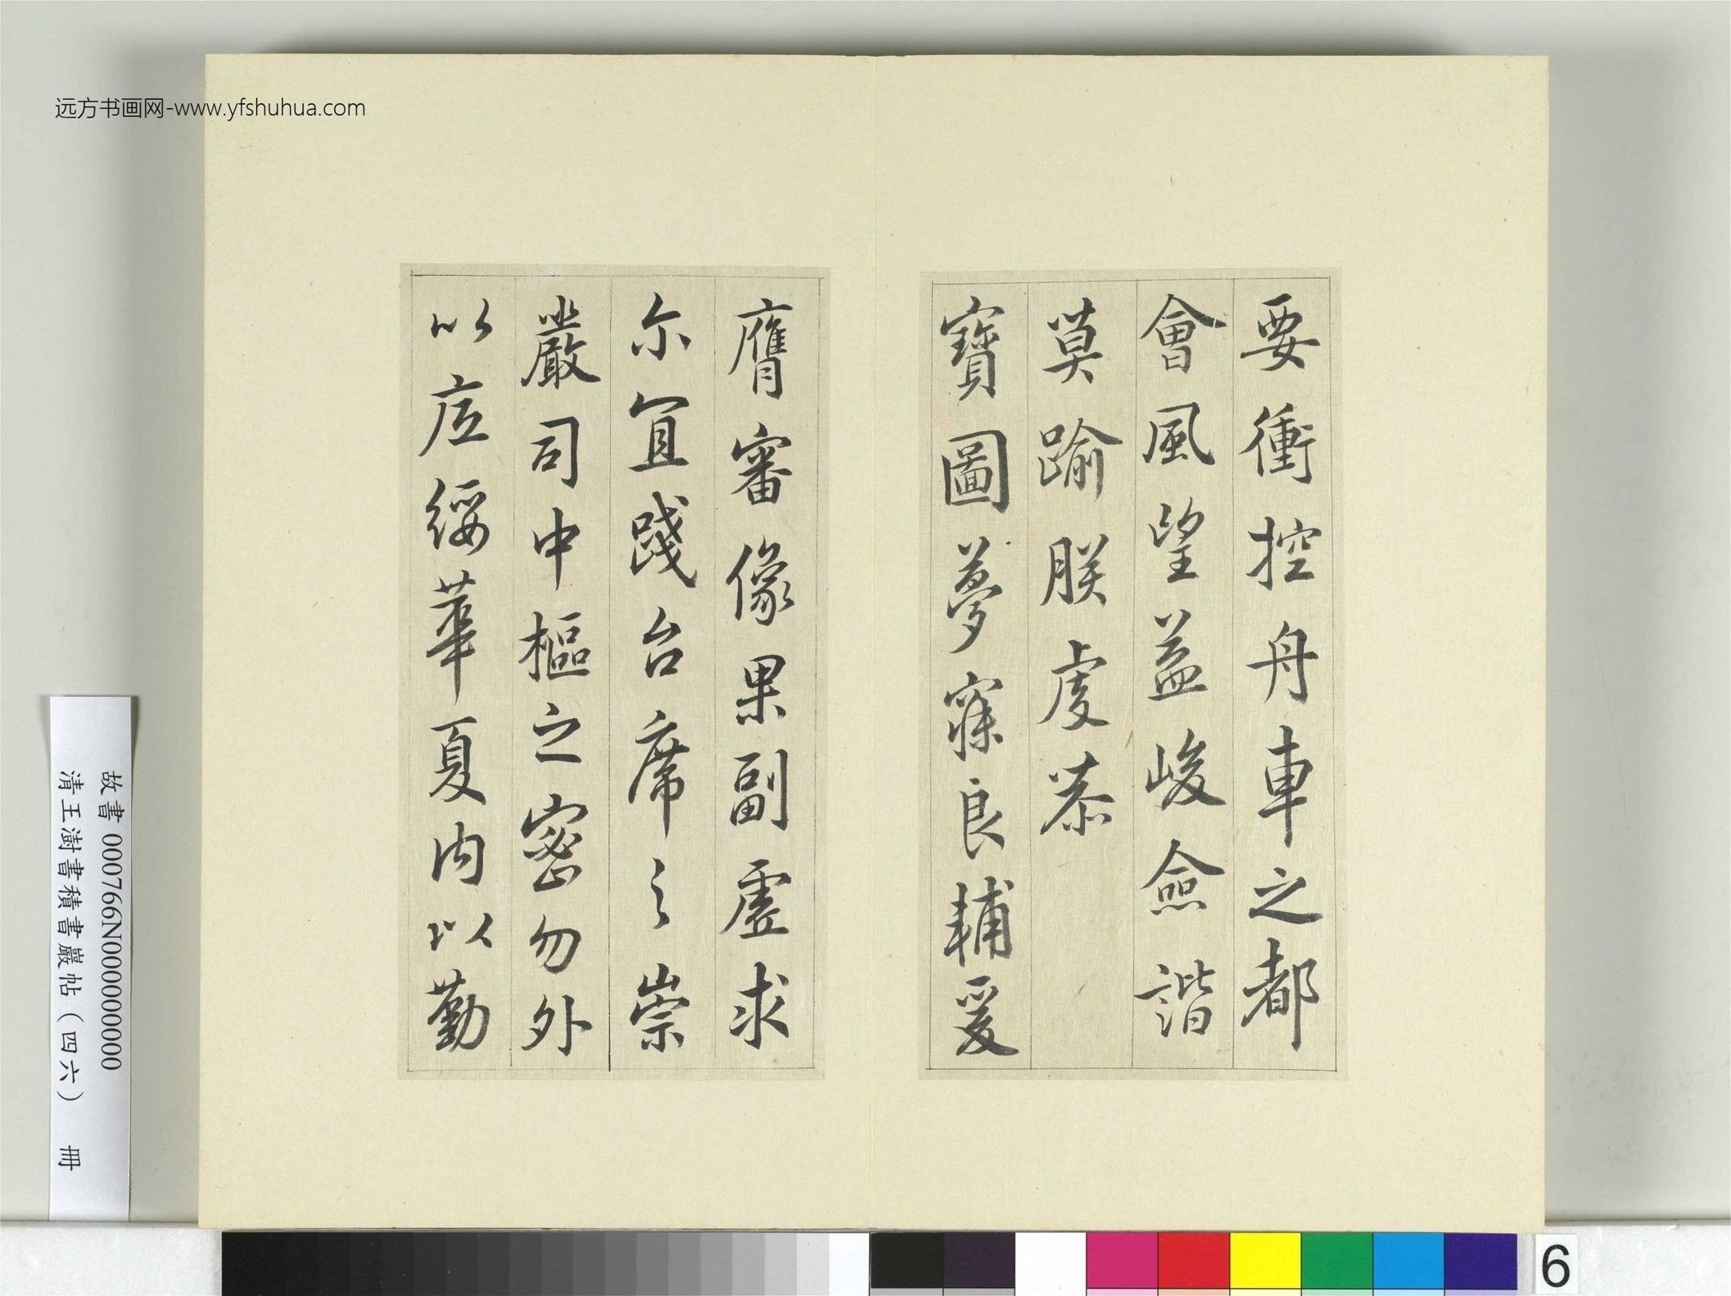 远方书画网-www.yfshuhua.com
要衝控舟車之都
會風望益峻僉諧
莫踰朕虔恭
寶圖夢寐良輔爰
膺審像果副虛求
尓宜踐台席之崇
嚴司中樞之密勿外
以庇綏華夏内以勤
故書 000766N000000000
清王澍書積書巖帖（四六） 冊
6